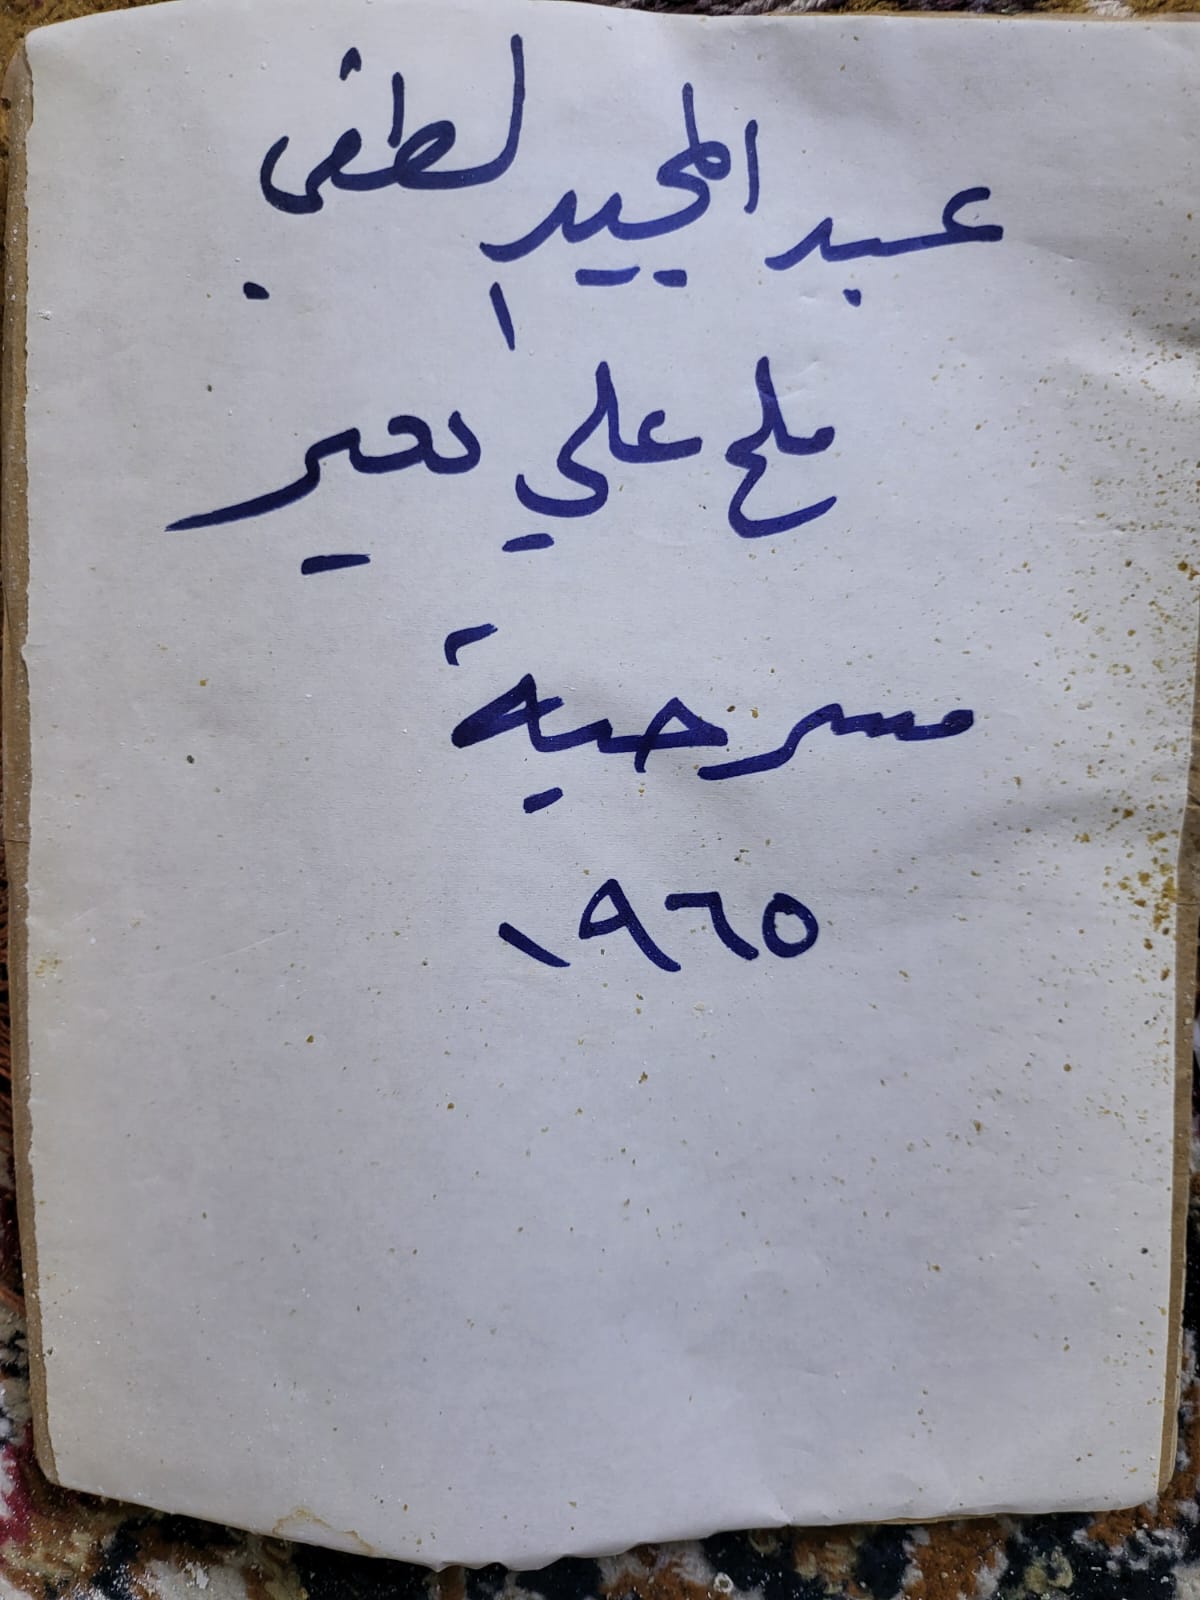 عبد المجيد لطفي
ملح علي
مسرحية
١٩٦٥